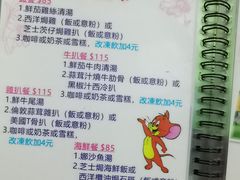 餐 $85
1.鮮茄雞絲清湯
2.西洋焗雞（飯或意粉）或
芝士茨仔焗雞扒（飯或意粉）
3.咖啡或奶茶或雪糕，改凍飲加4元
牛扒餐 $115
1.鮮茄牛肉清湯
2.蒜茸汁燒牛肋骨（飯或意粉）或
黑椒汁西冷扒
3.咖啡或奶茶或雪糕，改凍飲加4元
雞扒餐 $115
1.鮮牛尾湯
2.倫敦蒜茸雞扒（飯或意粉）或
美國T骨扒（飯或意粉）
3.咖啡或奶茶或雪糕，
改凍飲加4元
海鮮餐 $85
1.喇沙魚湯
2.芝士焗海鮮飯或